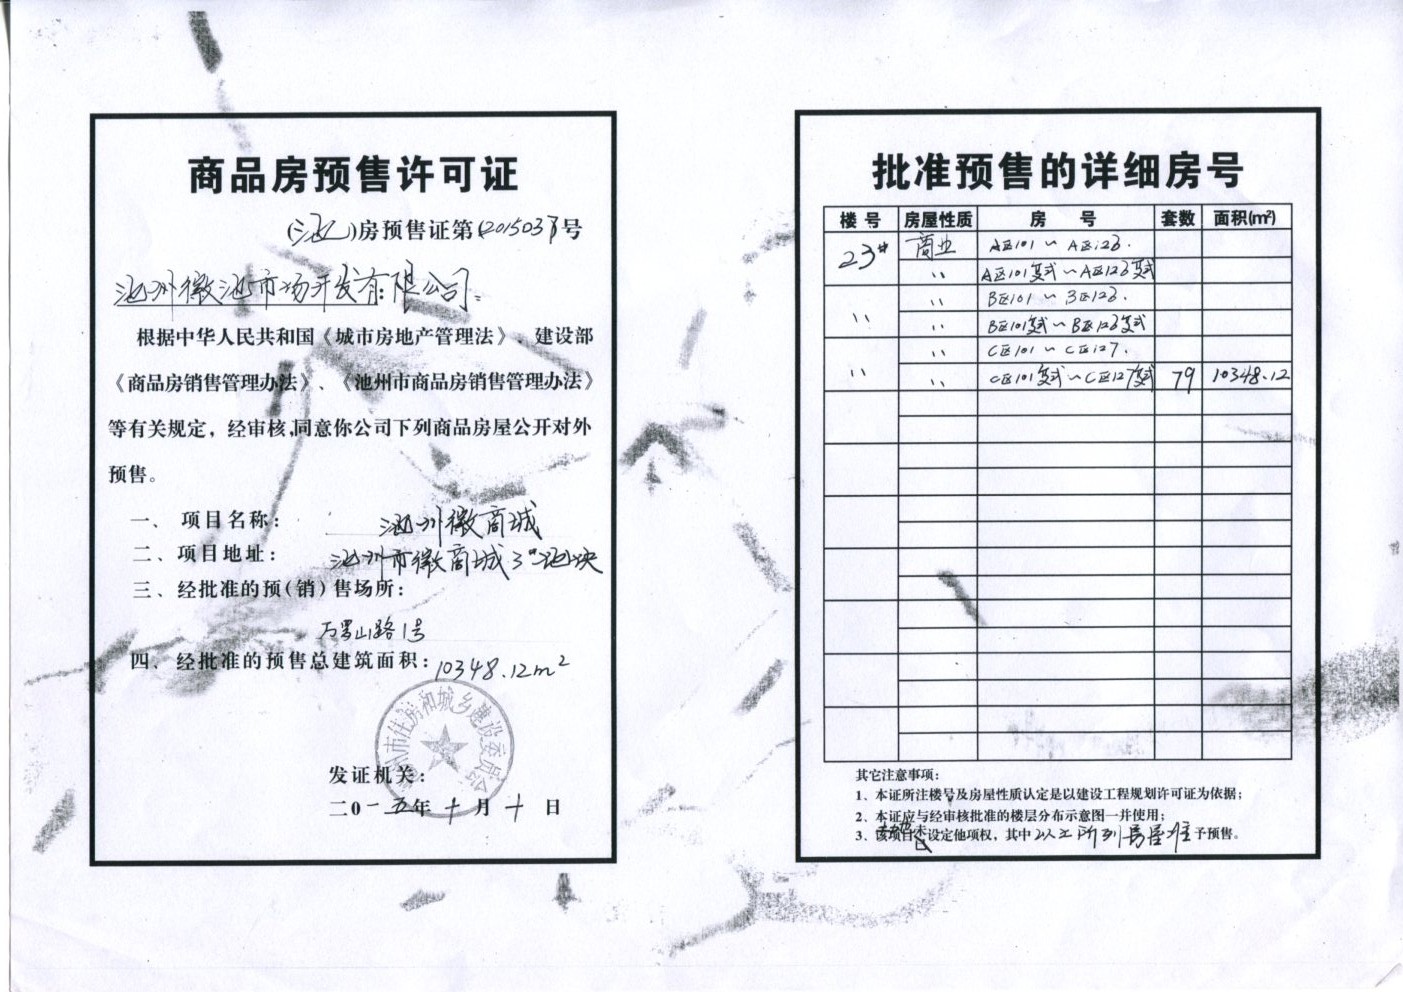 商品房预售许可证
(池)房预售证第(2015037)号
池州徽池市场开发有限公司:
根据中华人民共和国《城市房地产管理法》、建设部
《商品房销售管理办法》、《池州市商品房销售管理办法》
等有关规定，经审核,同意你公司下列商品房屋公开对外
预售。
一、项目名称: 池州徽商城
二、项目地址: 池州市徽商城3#地块
三、经批准的预(销)售场所:
万罗山路1号
四、经批准的预售总建筑面积: 10348.12m²
州市住房和城乡建设委员会
发证机关:
二0一五年十月十日
批准预售的详细房号
楼号 房屋性质 房号 套数 面积(㎡)
23# 商业 A区101~A区123.
〃 A区101复式~A区123复式
〃 〃 B区101~B区123.
〃 B区101复式~B区123复式
〃 C区101~C区127.
〃 〃 C区101复式~C区127复式 79 10348.12
其它注意事项:
1、本证所注楼号及房屋性质认定是以建设工程规划许可证为依据;
2、本证应与经审核批准的楼层分布示意图一并使用;
3、该项目未设定他项权，其中以上所列房屋准予预售。